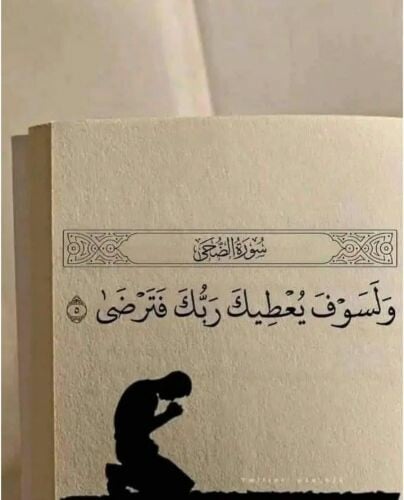 سُورَةُ الضُّحَى
وَلَسَوْفَ يُعْطِيكَ رَبُّكَ فَتَرْضَىٰ ٥